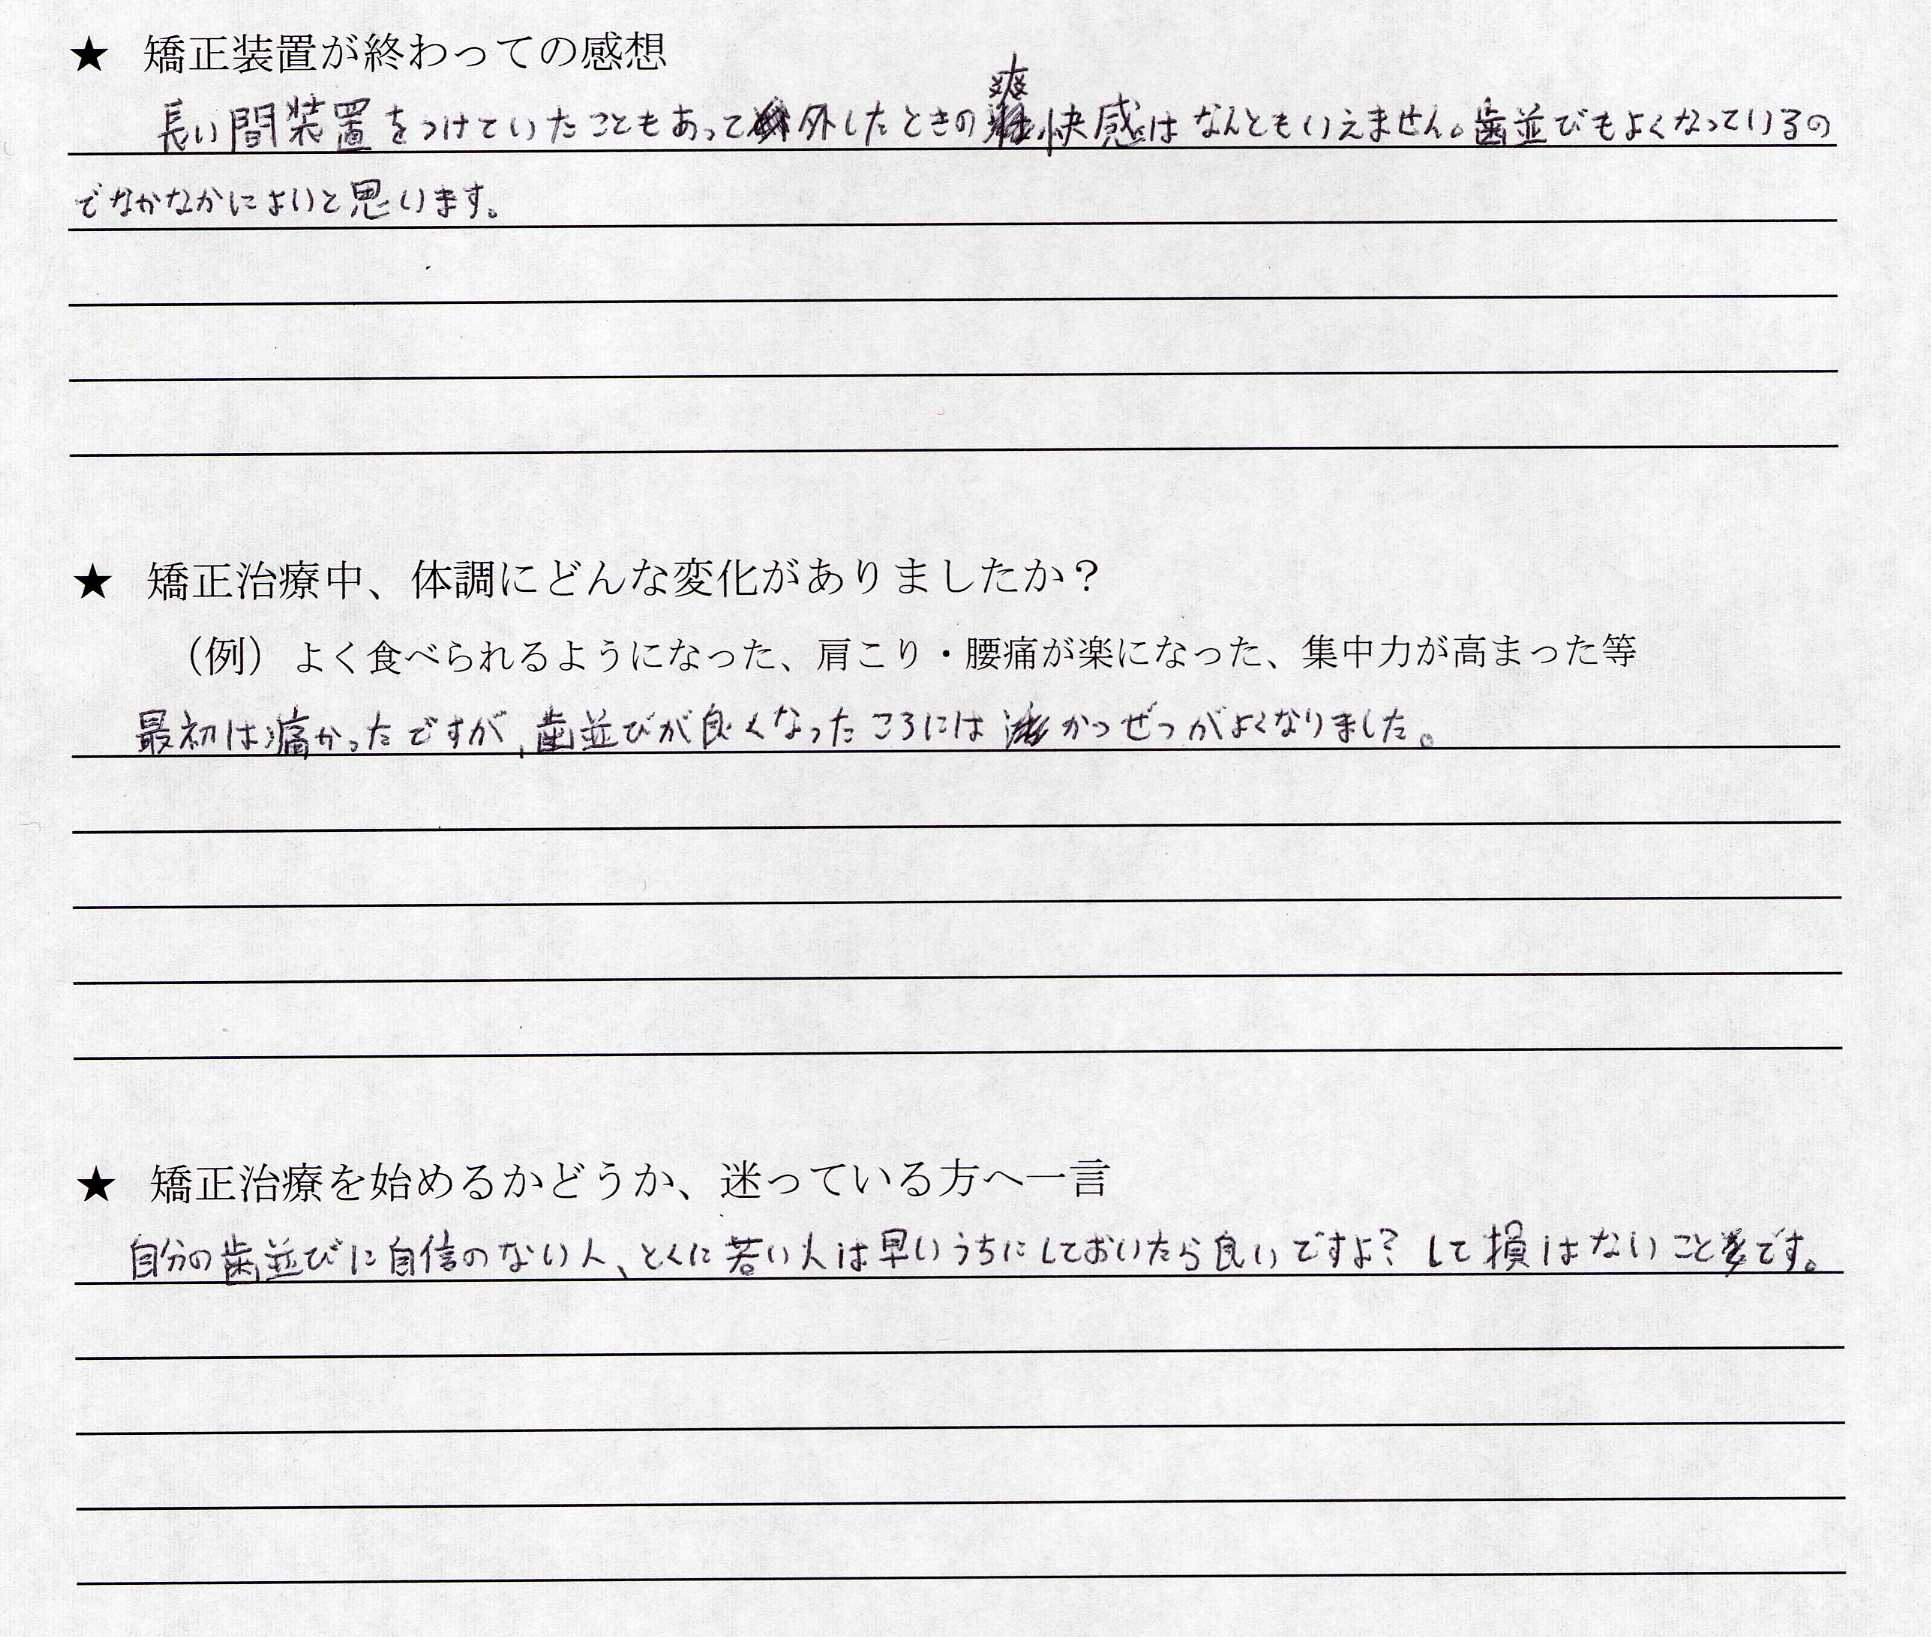 ★ 矯正装置が終わっての感想
長い間装置をつけていたこともあって外したときの爽快感はなんともいえません。歯並びもよくなっているの
でなかなかによいと思います。
★ 矯正治療中、体調にどんな変化がありましたか？
（例）よく食べられるようになった、肩こり・腰痛が楽になった、集中力が高まった等
最初は痛かったですが、歯並びが良くなったころには かつぜつがよくなりました。
★ 矯正治療を始めるかどうか、迷っている方へ一言
自分の歯並びに自信のない人、とくに若い人は早いうちにしておいたら良いですよ？して損はないことです。